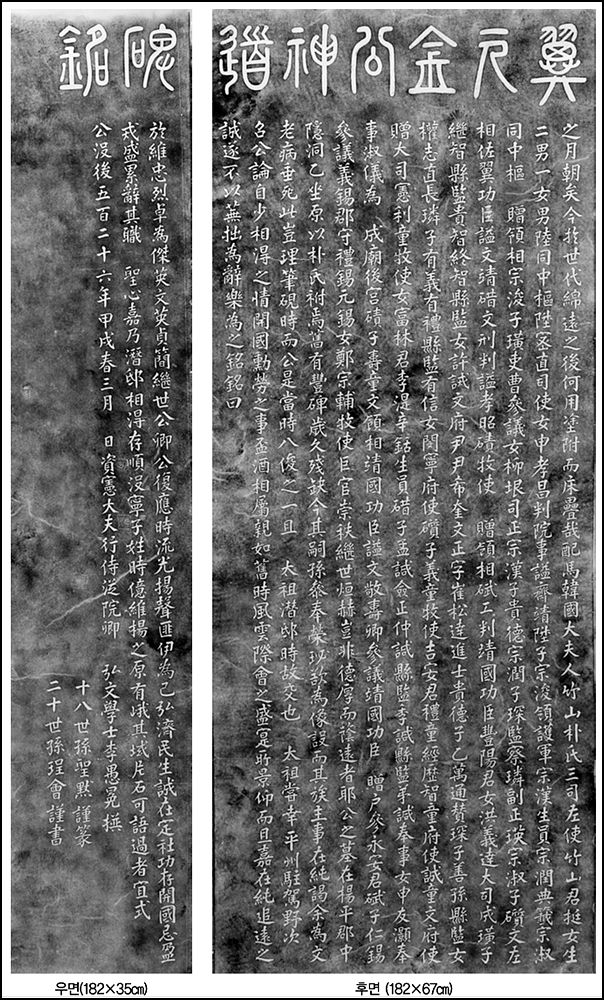 翼元金公神道
之月朝矣今於世代綿遠之後何用塗附而床疊哉配馬韓國大夫人竹山朴氏三司左使竹山君挺女生
二男一女男陸同中樞陞密直司使女申孝昌判院事謚齋靖陞子宗浚領護軍宗漢生員宗潤典籤宗淑
同中樞 贈領相宗浚子璜吏曹參議女柳垠司正宗漢子貴德宗潤子琛監察璘副正瑛宗淑子礩文左
相佐翼功臣謚文靖碏文刑判謚孝昭磧牧使 贈領相碔工判靖國功臣豐陽君女洪義達大司成璜子
繼智縣監貴智終智縣監女許誠文府尹尹希奎文正字崔松達進士貴德子乙萬通贊琛子善孫縣監女
權志直長璘子有義有禮縣監有信女閔寧府使礩子義童牧使吉安君禮童經歷智童府使誠童文府使
贈大司憲利童牧使女富林君李湜辛 生員碏子孟誠僉正仲誠縣監季誠縣監弟誠奉事女申友灝奉
事淑儀為 成廟後宮磧子壽童文領相靖國功臣謚文敬壽卿參議靖國功臣 贈戶參永安君碔子仁錫
參議義錫郡守禮錫元錫女鄭宗輔牧使巨官崇秩繼世烜赫豈非德厚而蔭遠者耶公之墓在揚平郡中
隱洞乙坐原以朴氏祔焉舊有豊碑歲久殘缺今其嗣孫泰奉募珉敦為像設而其族主事在純謁余為文
老病垂死此豈理筆硯時而公是當時八俊之一且 太祖潛邸時故交也 太祖嘗幸平州駐駕野次
召公論自少相得之情開國勳勞之事盃酒相屬親如舊時風雲際會之盛寔所景仰而且嘉在純追遠之
誠遂不以蕪拙為辭樂為之銘銘曰
碑銘
於維忠烈卓為傑英文英貞簡繼世公卿公復應時流光揚聲匪伊為己弘濟民生誠在定社功存開國忌盈
戒盛累辭其職 聖心嘉乃潛邸相得存順沒寧子姓時億維揚之原有峨其域片石可語過者宜式
公沒後五百二十六年甲戌春三月 日資憲大夫行侍從院卿 弘文學士李愚冕撰
十八世孫聖默謹篆
二十世孫珵會謹書
우면(182×35㎝)
후면 (182×67㎝)